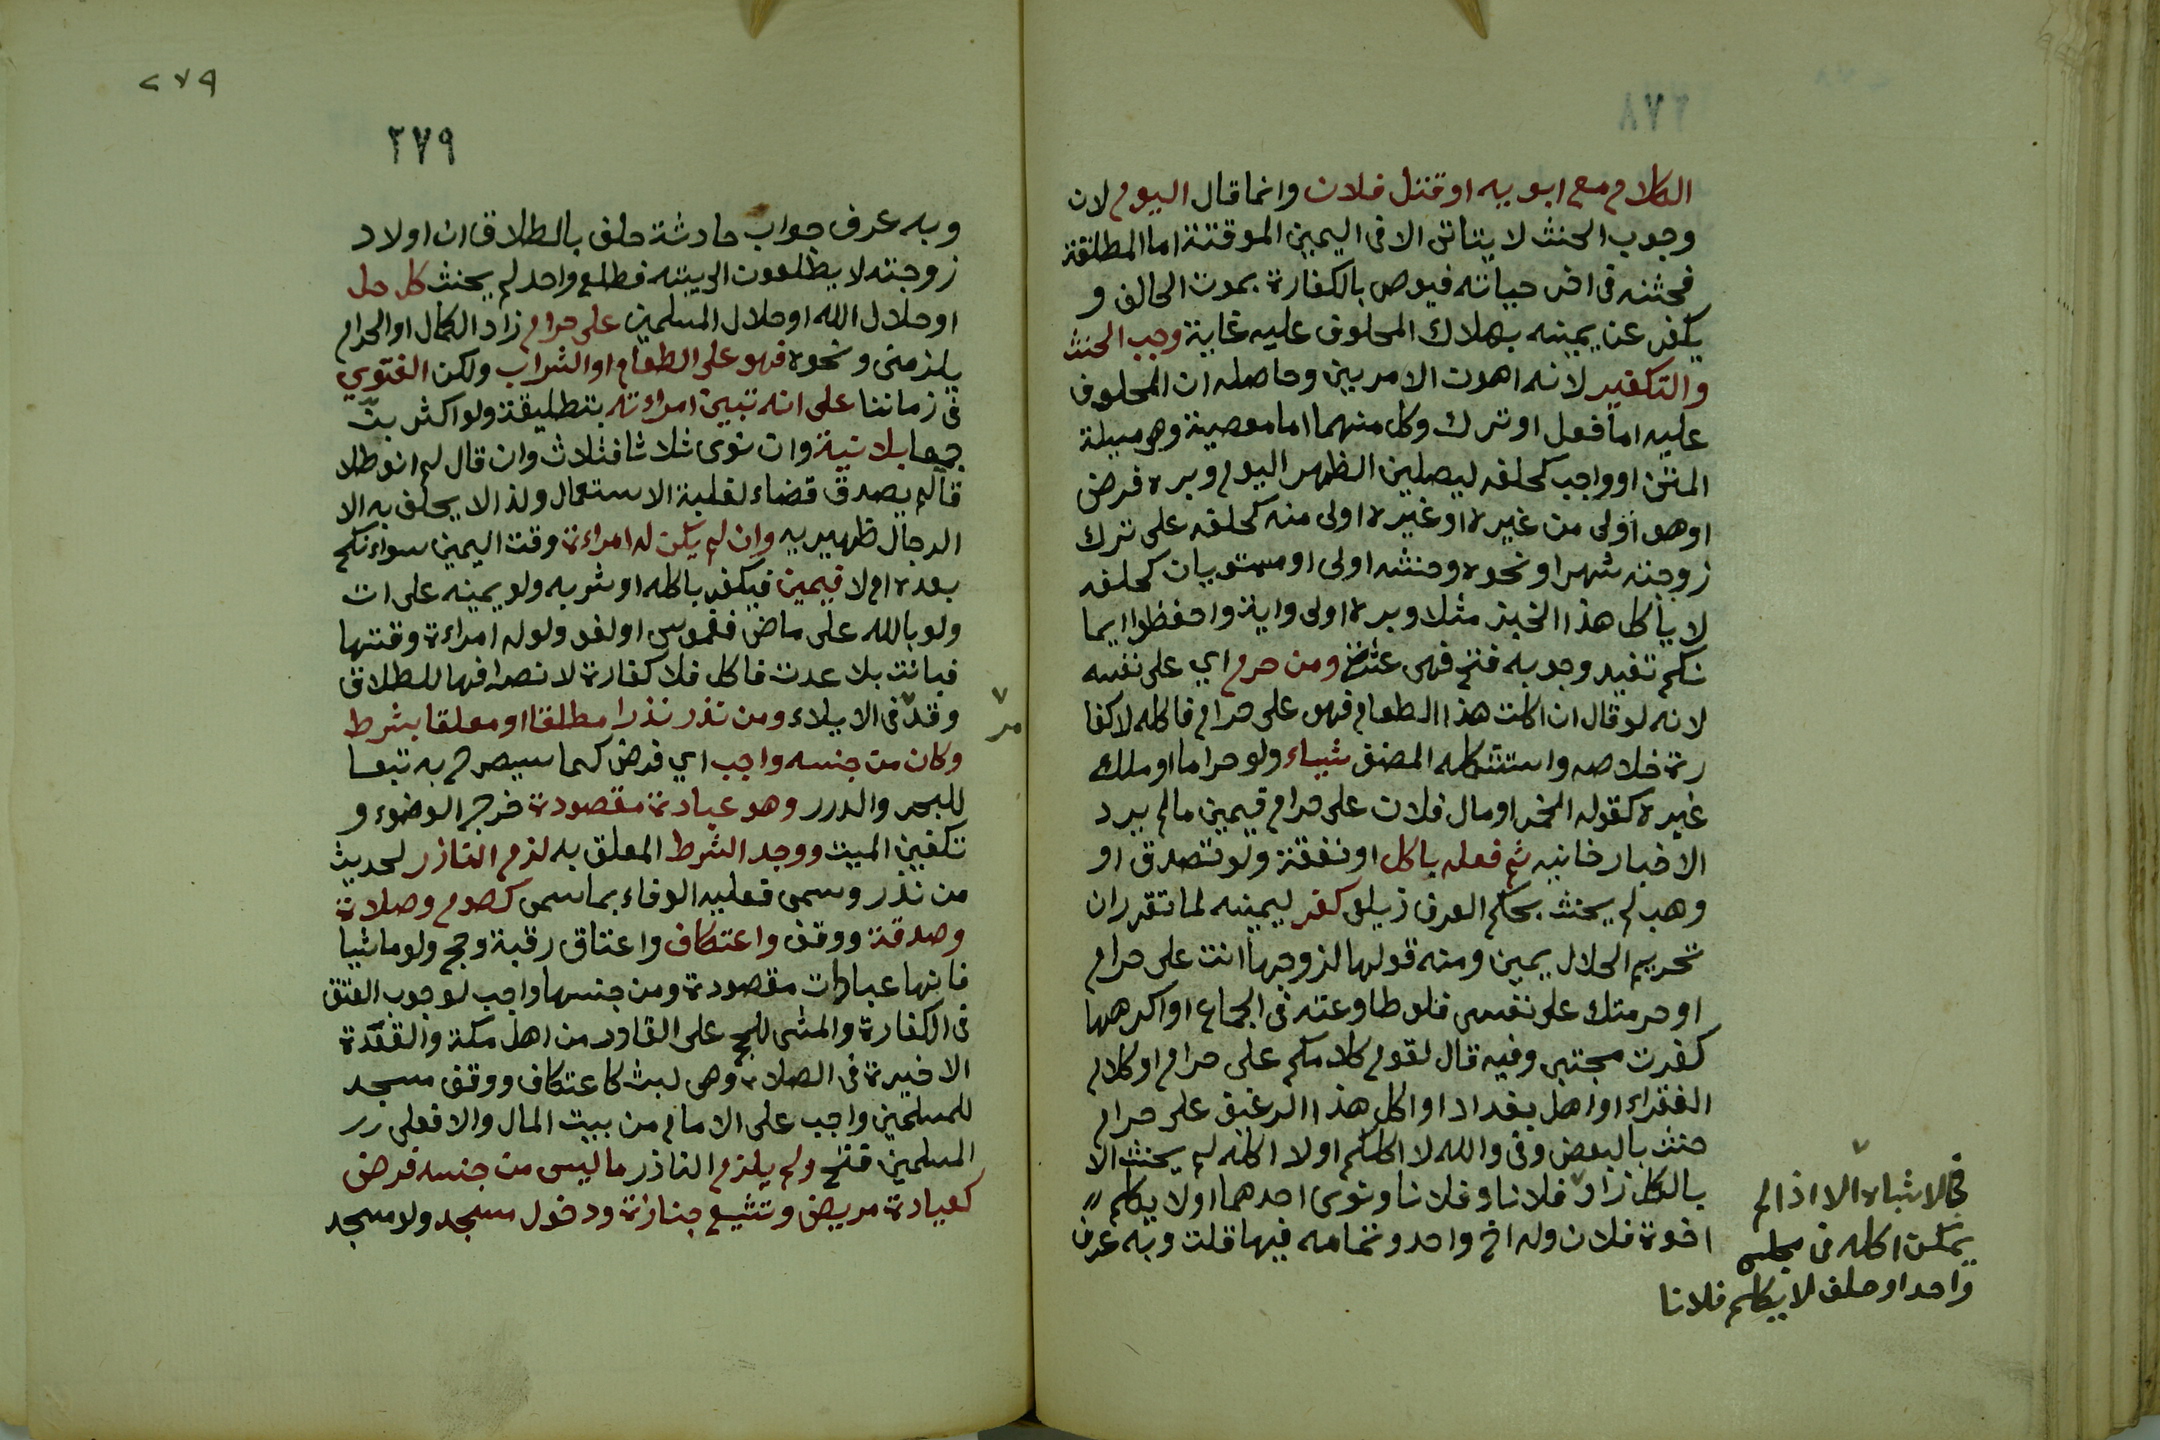 ٢٧٨
الكلام مع ابويه او قتل فلان وانما قال اليوم لان
وجوب الحنث لا يتاتى الا فى اليمين الموقتة اما المطلقة
فحثنه فى اخر حياته فيوص بالكفارة بموت الحالف و
يكفر عن يمينه بهلاك المحلوف عليه غاية وجب الحنث
والتكفير لانه اهون الامرين وحاصله ان المحلوف
عليه اما فعل او ترك وكل منهما اما معصية وهى مسيلة
المتن او واجب كحلفه ليصلين الظهر اليوم وبره فرض
او هو اولى من غيره او غيره اولى منه كحلفه على ترك
زوجته شهرا ونحوه وحنثه اولى او مستويان كحلفه
لا ياكل هذا الخبز مثلا وبره اولى واية واحفظوا ايما
نكم تفيد وجوبه فتح فهى عشرة ومن حرم اي على نفسه
لانه لو قال ان اكلت هذا الطعام فهو على حرام فاكله لا كفا
رة خلاصه واستشكله المصنف شياء ولو حراما او ملك
غيره كقوله الخمر او مال فلان على حرام فيمين ما لم يرد
الاخبار خانيه ثم فعله باكل او نفقة ولو تصدق او
وهب لم يحنث بحكم العرف زيلعى كفر ليمينه لما تقرر ان
تحريم الحلال يمين ومنه قولها لزوجها انت على حرام
او حرمتك على نفسى فلو طاوعته فى الجماع او اكرهها
كفرت مجتبى وفيه قال لقوم كلامكم على حرام او كلام
الفقراء او اهل بغداد او اكل هذا الرغيف على حرام
حنث بالبعض وفى والله لا اكلمكم او لا اكله لم يحنث الا
بالكل زاد فلانا وفلانا ونوى احدهما او لا يكلم
اخوة فلان وله اخ واحد وتمامه فيها قلت وبه عرف
فى الاشباه الا اذا لم
يمكن اكله فى مجلس
واحد او حلف لا يكلم فلانا
٢٧٩
٢٧٩
وبه عرف جواب حادثة حلف بالطلاق ان اولاد
زوجته لا يطلعون الى بيته فطلع واحد لم يحنث كل حل
او حلال الله او حلال المسلمين على حرام زاد الكمال او الحرام
يلزمنى ونحوه فهو على الطعام او الشراب ولكن الفتوي
فى زماننا على انه تبين امراءته بتطليقة ولو اكثر بن
جميعا بلا نية وان نوى ثلاثا فثلاث وان قال لم انو طلا
قا لم يصدق قضاء لغلبة الاستعمال ولذا لا يحلف به الا
الرجال ظهيريه وان لم يكن له امراءة وقت اليمين سواء نكح
بعده ام لا فيمين فيكفر باكله او شربه ولو يمينه على ات
ولو بالله على ماض فغموس او لغو ولو له امراءة وقتها
فبانت بلا عدت فاكل فلا كفارة لانصرافها للطلاق
وقد فى الايلاء ومن نذر نذرا مطلقا او معلقا بشرط
مر
وكان من جنسه واجب اي فرض كما سيصرح به تبعا
للبحر والدرر وهو عبادة مقصودة خرج الوضوء و
تكفين الميت ووجد الشرط المعلق به لزم الناذر لحديث
من نذر وسمى فعليه الوفاء بما سمى كصوم وصلاة
وصدقة ووقف واعتكاف واعتاق رقبة وحج ولو ماشيا
فانها عبادات مقصودة ومن جنسها واجب لوجوب العتق
فى الكفارة والمشى للحج على القادر من اهل مكة والقعدة
الاخيرة فى الصلاة وهى لبث كاعتكاف ووقف مسجد
للمسلمين واجب على الامام من بيت المال والا فعلى
المسلمين فتح ولم يلزم الناذر ما ليس من جنسه فرض
كعيادة مريض وتشيع جنازة ودخول مسجد ولو مسجد